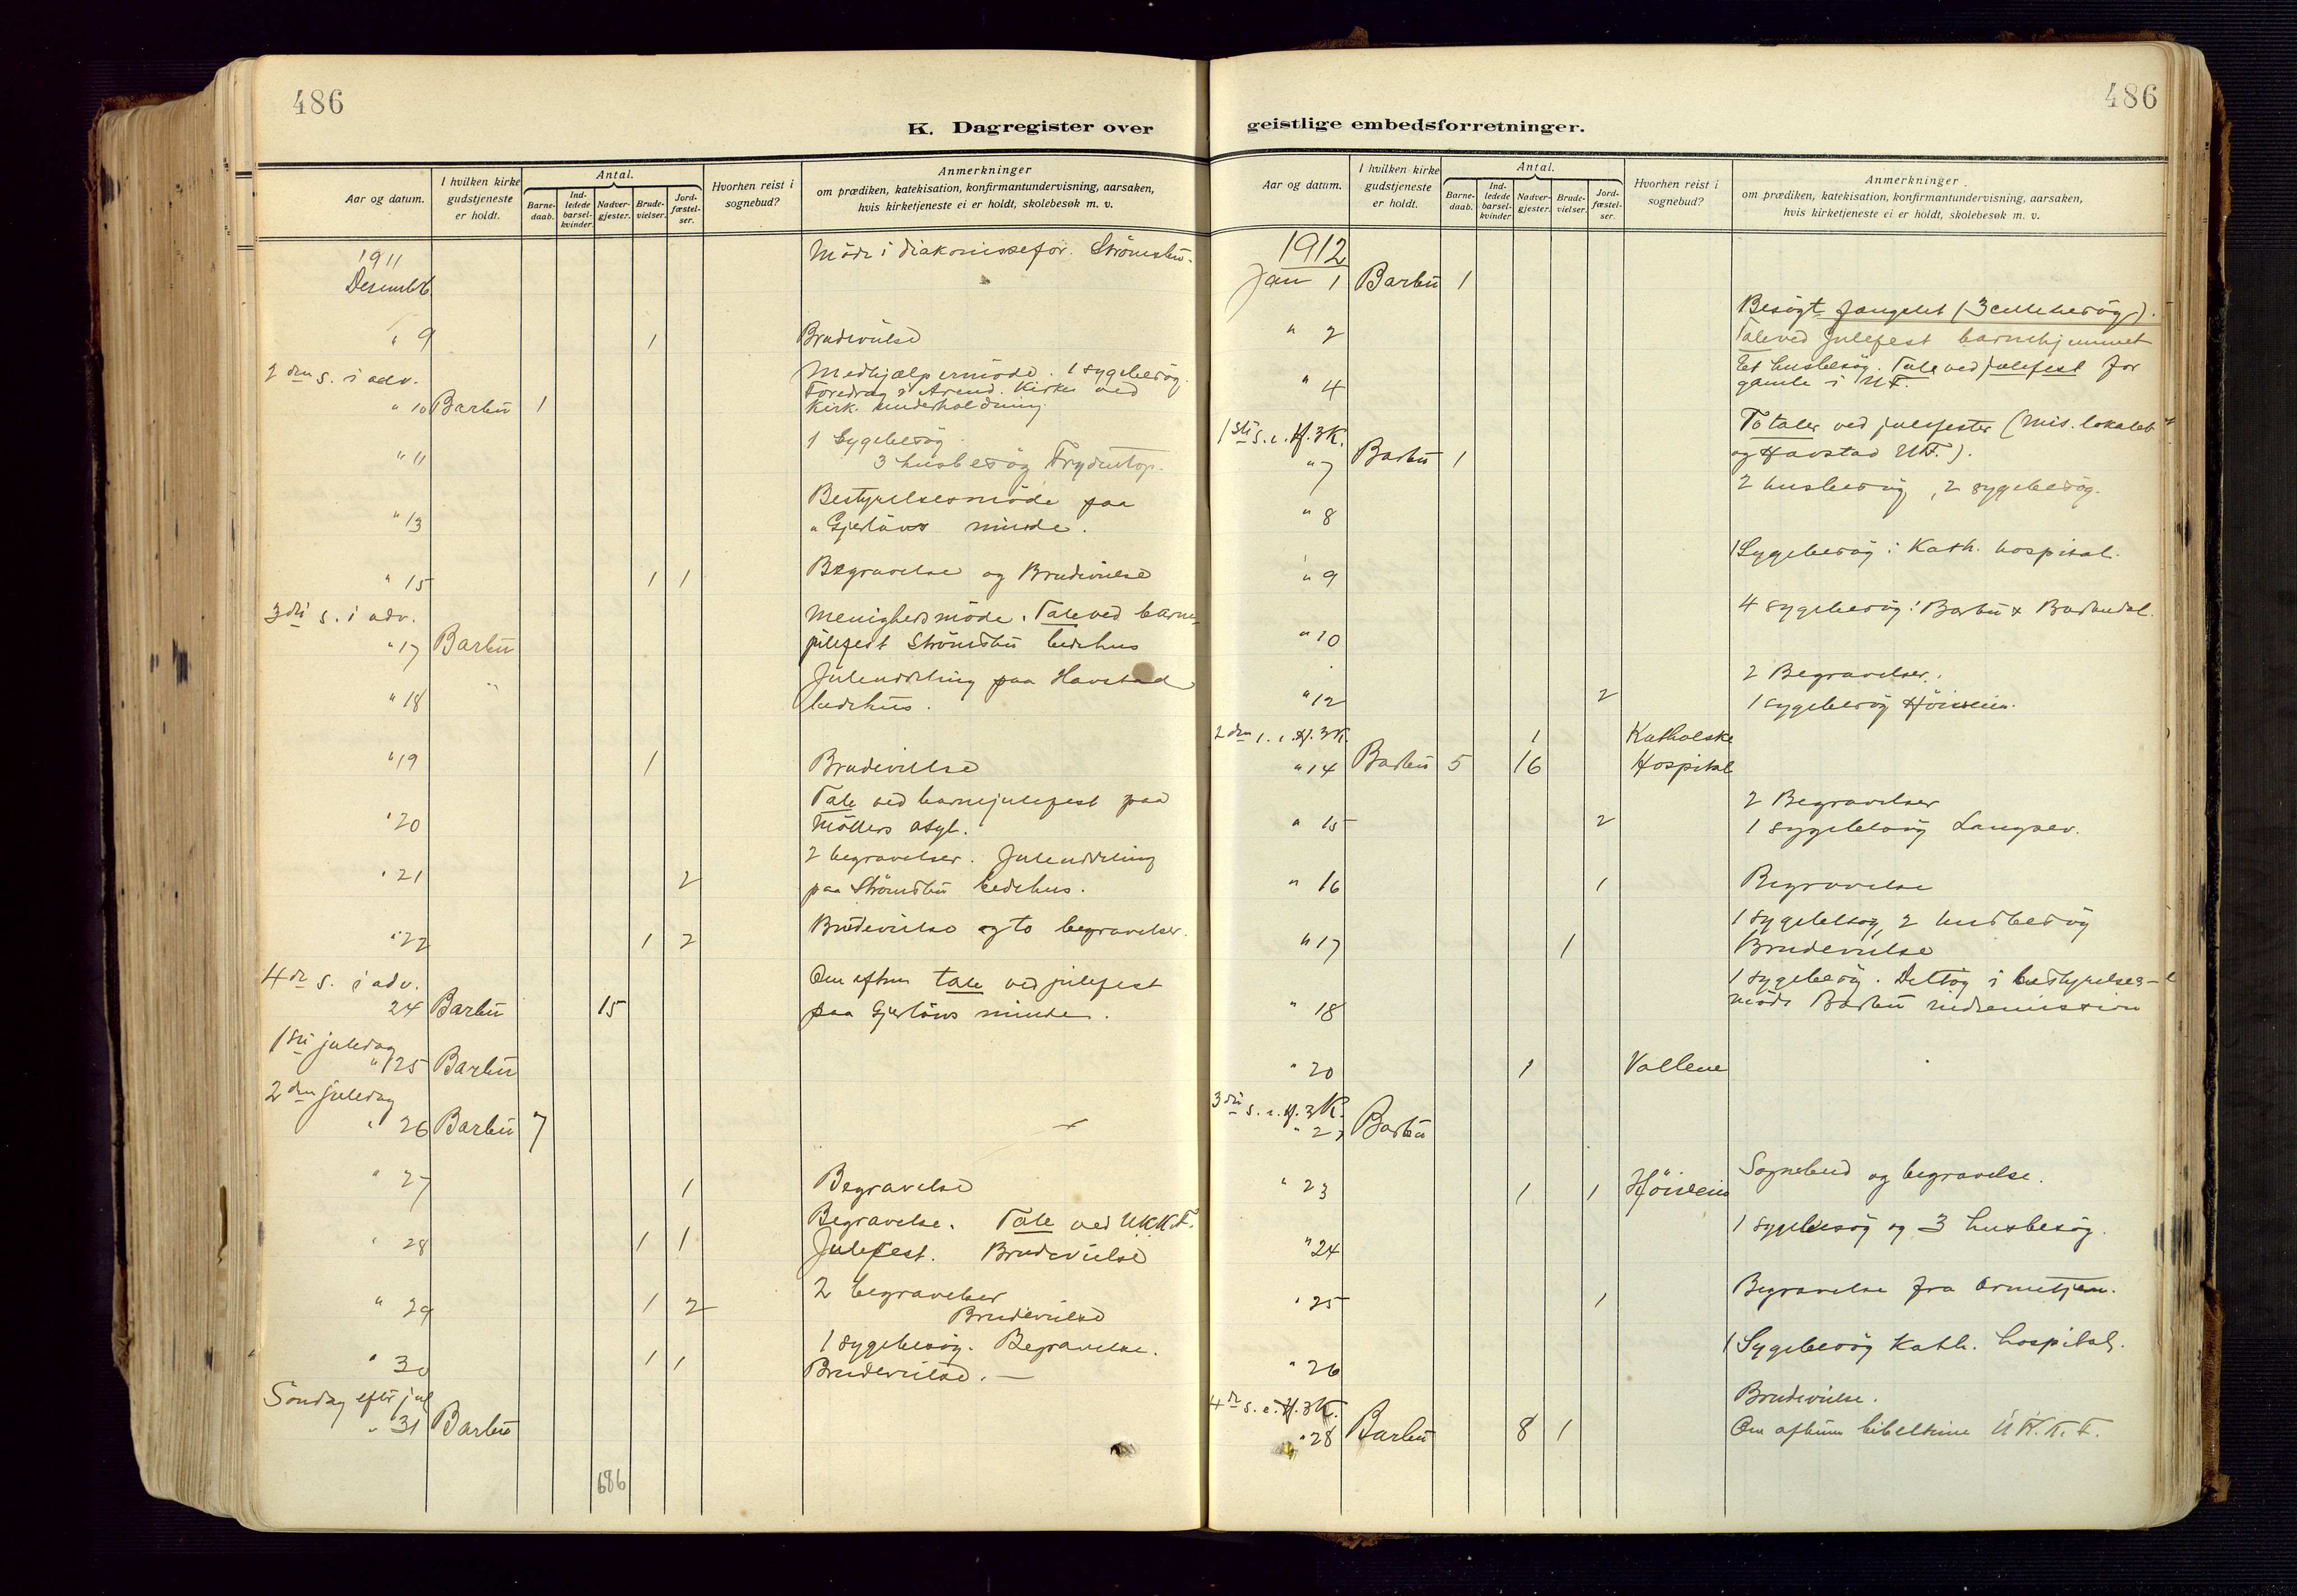 486
K. Dagregister over
Aar og datum.
I hvilken kirke gudstjeneste er holdt.
Antal.
Barne-daab.
Ind-ledede barsel-kvinder.
Nadver-gjester.
Brude-vielser.
Jord-fæstel-ser.
Hvorhen reist i sognebud?
Anmerkninger
om prædiken, katekisation, konfirmantundervisning, aarsaken,
hvis kirketjeneste ei er holdt, skolebesøk m. v.
1911 Møde i diakonissefor.
Desember
" 9 1 Brudevielse
2den s. i adv. Medhjælpermøde. 1 sygebesøg.
Foredrag i Arend. Kirke ved
" 10 Barbu 1 Kirk. underholdning
1 Sygebesøg.
" 11 3 husbesøg
Bestyrelsesmøde paa
" 13 "Gjerløws minde.
" 15 1 1 Begravelse og Brudevielse
3die s. i adv. Menighedsmøde. Tale ved barne-
" 17 Barbu julefest Strömsbu bedehus
Juleuddeling paa Havstad
" 18 " bedehus.
" 19 1 Brudevielse
Tale ved barnejulefest paa
" 20 Möllers asyl.
2 begravelser. Juleuddeling
" 21 2 paa Strömsbu bedehus.
" 22 1 2 Brudevielse og to begravelser.
4de s. i adv. Om aftnen tale ved julefest
24 Barbu 15 paa Gjerløws minde.
1ste juledag
" 25 Barbu
2den juledag
" 26 Barbu 7
" 27 1 Begravelse
Begravelse. Tale ved U.K.K.F.
" 28 1 1 Julefest. Brudevielse
2 begravelser
" 29 1 2 Brudevielse
1 sygebesøg. Begravelse.
" 30 1 1 Brudevielse. —
Söndag efter jul
" 31 Barbu
686
486
geistlige embedsforretninger.
Aar og datum.
I hvilken kirke gudstjeneste er holdt.
Antal.
Barne-daab.
Ind-ledede barsel-kvinder
Nadver-gjester.
Brude-vielser.
Jord-fæstel-ser.
Hvorhen reist i sognebud?
Anmerkninger
om prædiken, katekisation, konfirmantundervisning, aarsaken,
hvis kirketjeneste ei er holdt, skolebesøk m. v.
1912
Jan 1 Barbu 1
Besøgt fængslet (3 cellebesøg).
" 2 Tale ved julefest barnehjemmet
Et husbesøg. Tale ved julefest for
" 4 gamle i U.F.
1ste s. e. H.3K. To taler ved julefester (Mis. lokalet
" 7 Barbu 1 og Havstad U.F.).
2 husbesøg, 2 sygebesøg.
" 8
1 Sygebesøg i Kath. hospital.
" 9
4 sygebesøg: Barbu & Barbudal.
" 10
2 Begravelser.
" 12 2 1 sygebesøg
2den s. e. H.3K. 1 Katholske
" 14 Barbu 5 16 Hospital
2 Begravelser
" 15 2 1 sygebesøg Langsæv.
" 16 1 Begravelse
1 sygebesøg, 2 husbesøg
" 17 1 Brudevielse
1 sygebesøg. Deltog i bestyrelses-
" 18 møde Barbu indremission
" 20 1 Vollene
3die s. e. H.3K.
" 21 Barbu
Sognebud og begravelse.
" 23 1 1
1 sygebesøg og 3 husbesøg.
" 24
" 25 1 Begravelse fra
1 Sygebesøg Kath. hospital.
" 26
4de s. e. H.3K. Brudevielse.
" 28 Barbu 8 1 Om aftnen bibeltime U.K.K.F.